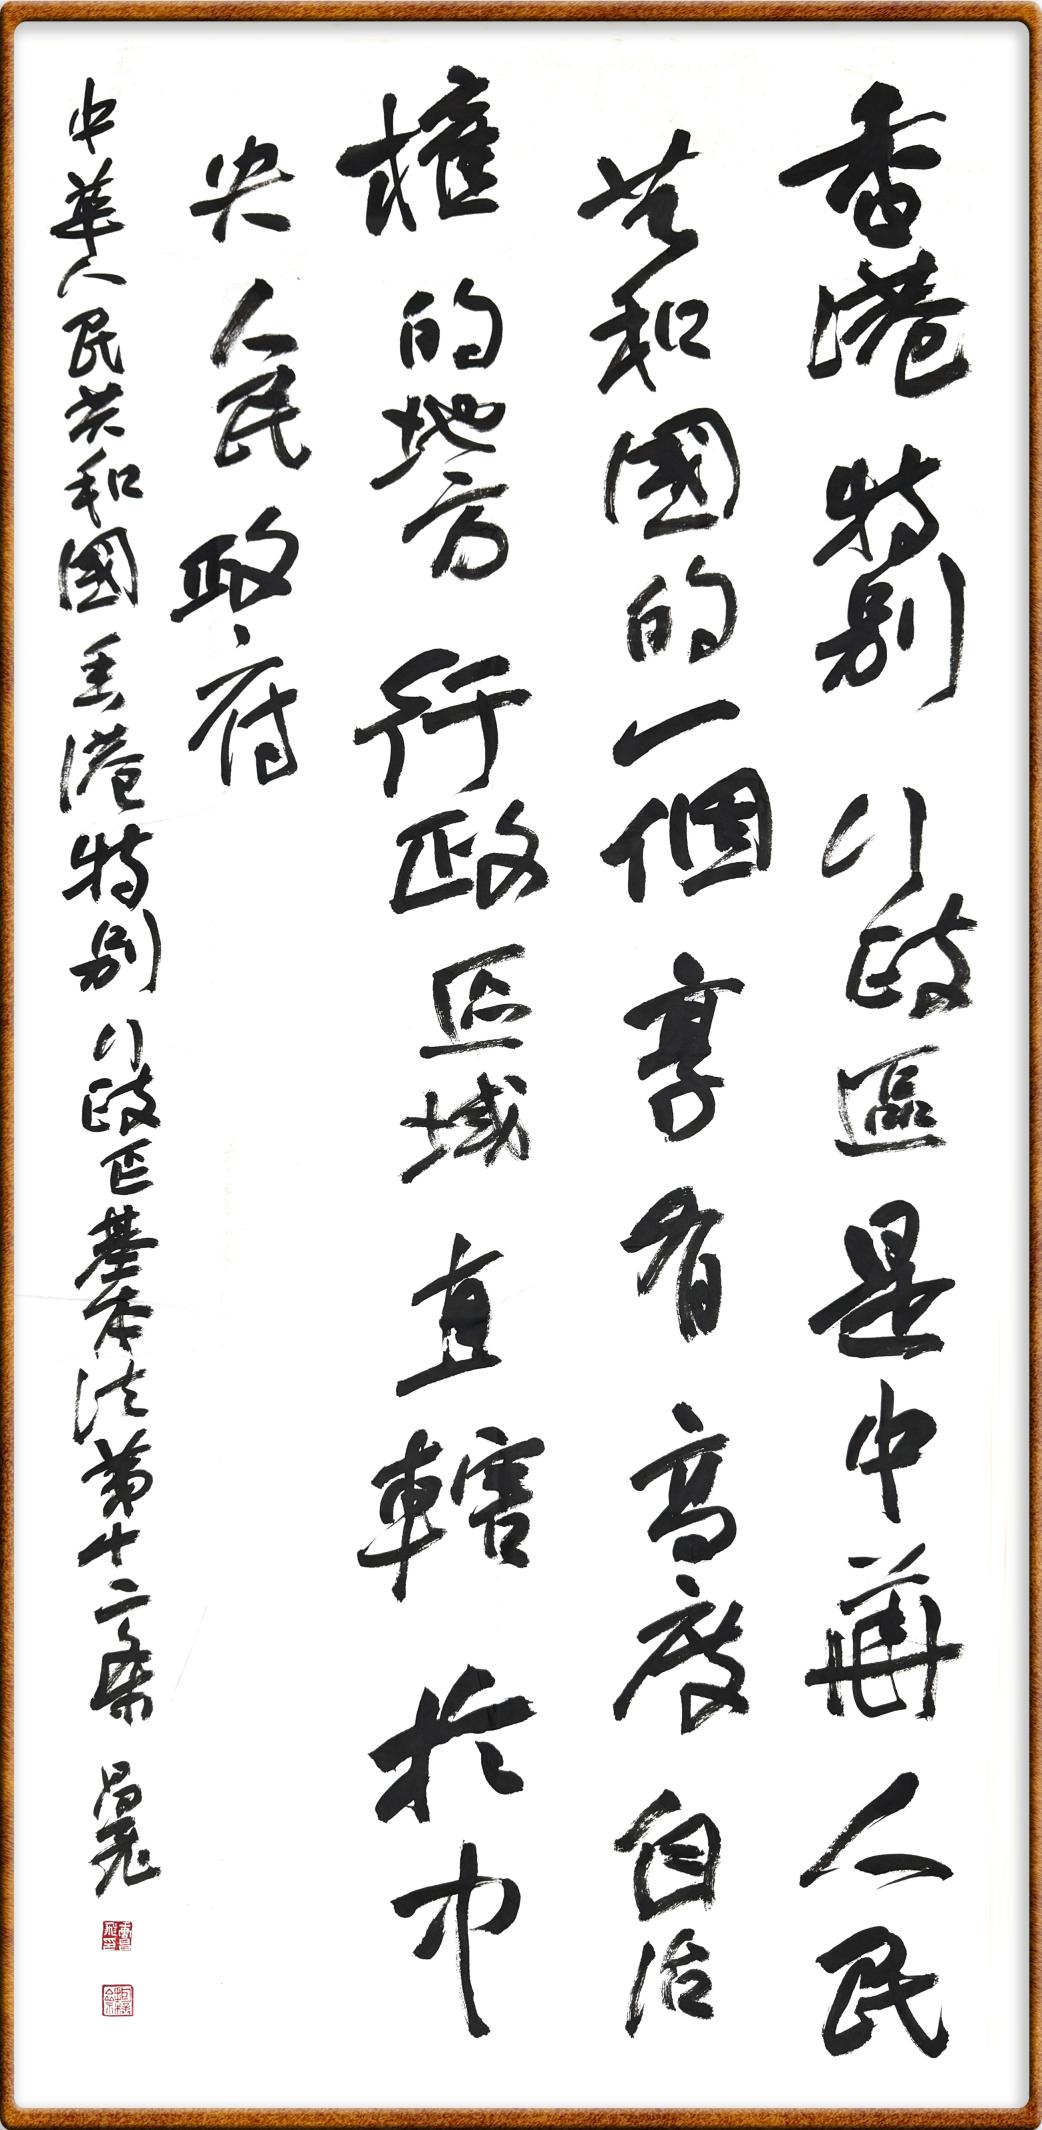 香港特别行政區是中華人民
共和國的一個享有高度自治
權的地方行政区域直轄於中
央人民政府
中華人民共和國香港特别行政区基本法第十二條